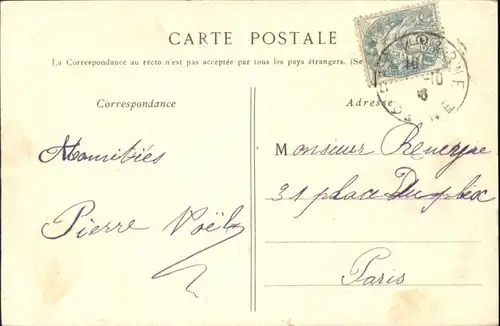 CARTE POSTALE
La Correspondance au recto n'est pas acceptée par tous les pays étrangers. (Se
Correspondance
Adresse
Amitiés
Pierre Noël
Monsieur Revergne
31 place Dupleix
Paris